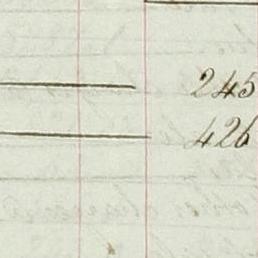 245
426